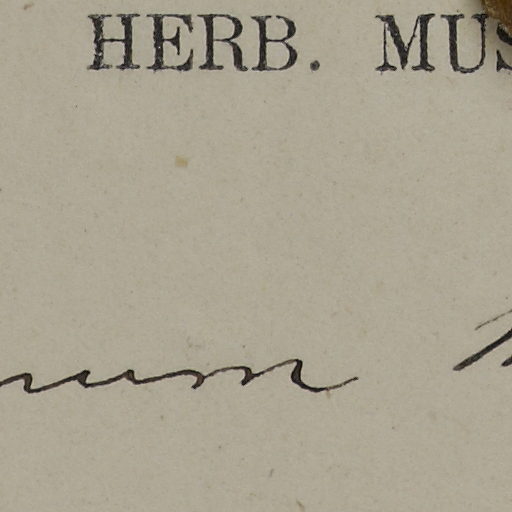 HERB. MUS
num